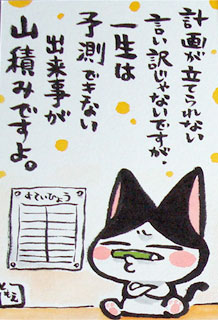 計画が立てられない
言い訳じゃないですが、
一生は
予測できない
出来事が
山積みですよ。
よていひょう